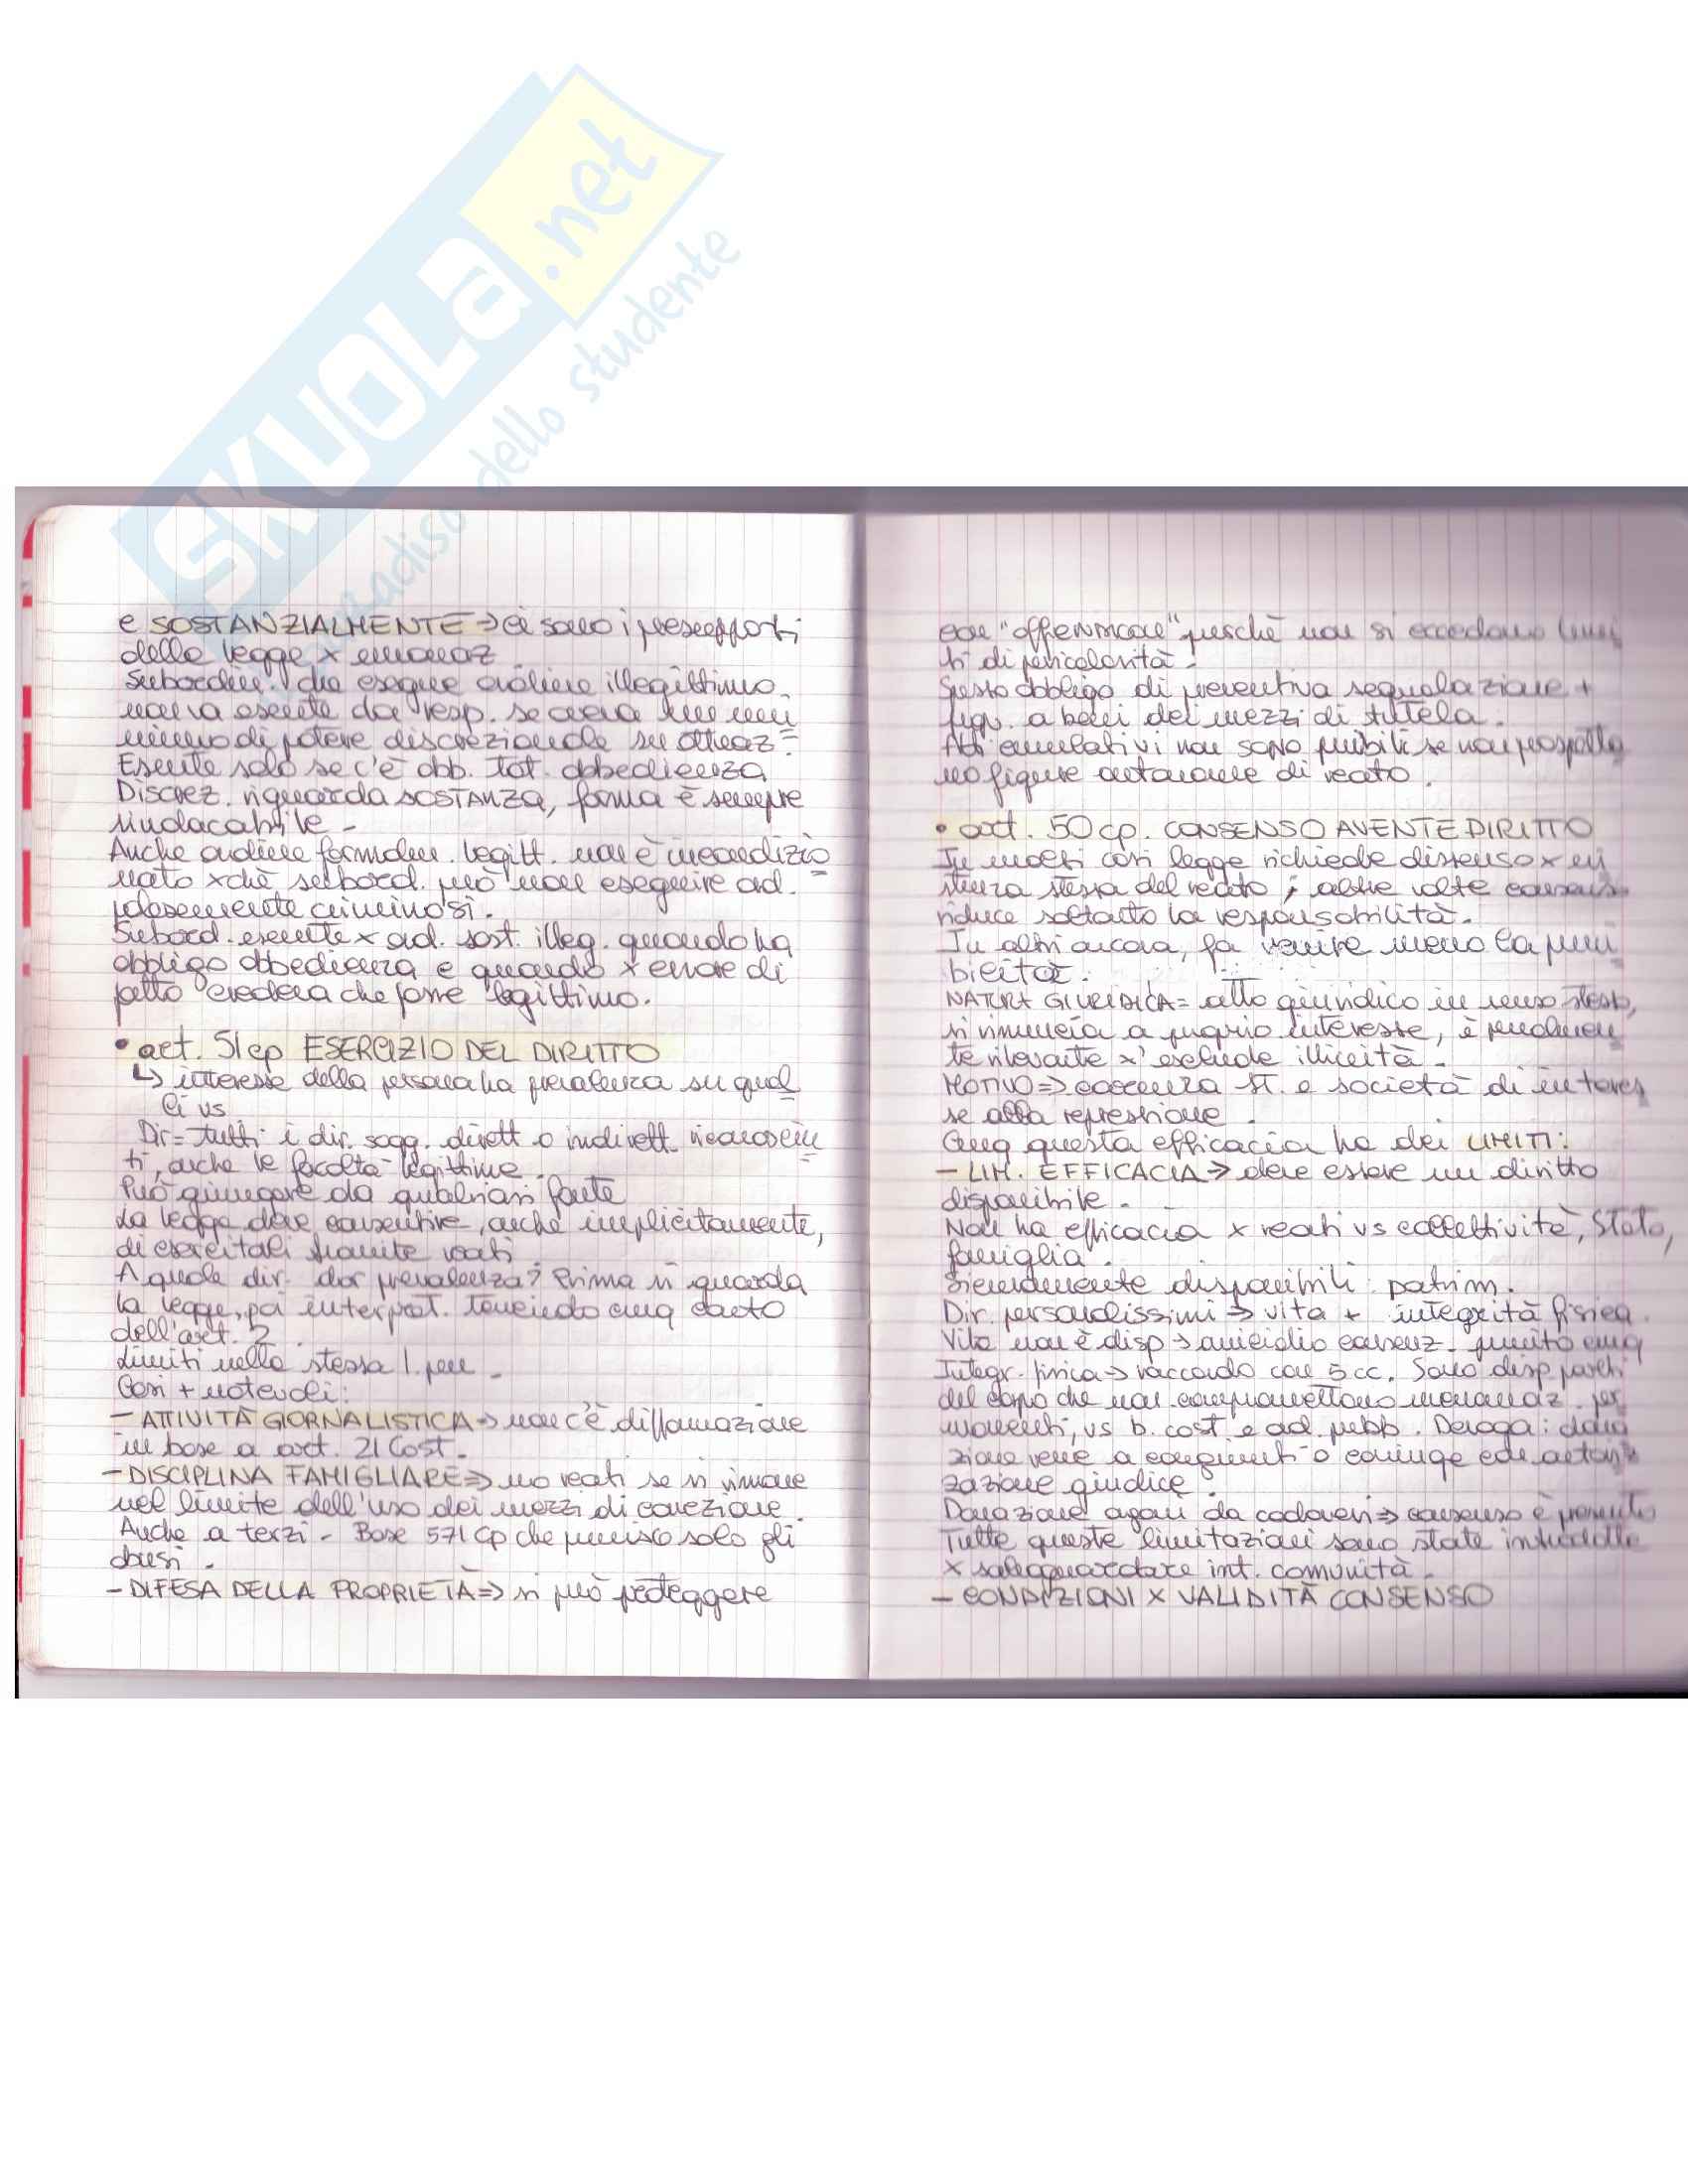 SKUOLA.net
paradiso dello studente
e SOSTANZIALMENTE => ci sono i presupposti
della legge x emanaz
Subordin. che esegue ordine illegittimo
non va esente da resp. se aveva un mi
nimo di potere discrezionale su attuaz =
Esente solo se c'è obb. tot. obbedienza
Discrez. riguarda SOSTANZA, forma è sempre
sindacabile -
Anche ordine formalm. legitt. non è incondizio
nato xchè subord. può non eseguire ord. =
palesemente criminosi.
Subord. esente x ord. sost. illeg. quando ha
obbligo obbedienza e quando x errore di
fatto credeva che fosse legittimo.
• art. 51 cp ESERCIZIO DEL DIRITTO
↳ interesse della persona ha prevalenza su quel
li vs
Dir = tutti i dir. sogg. dirett o indirett. riconosciu
ti, anche le facoltà legittime.
Può giungere da qualsiasi fonte
La legge deve consentire, anche implicitamente,
di esercitarli tramite reati.
A quale dir. dar prevalenza? Prima si guarda
la legge, poi interpret. tenendo cmq conto
dell'art. 2.
Limiti nella stessa l. pen -
Casi + notevoli:
- ATTIVITÀ GIORNALISTICA => non c'è diffamazione
in base a art. 21 Cost.
- DISCIPLINA FAMIGLIARE => no reati se si rimane
nel limite dell'uso dei mezzi di correzione.
Anche a terzi - Base 571 cp che punisce solo gli
abusi.
- DIFESA DELLA PROPRIETÀ => si può proteggere
con "offensicola" purchè non si eccedano limi
ti di pericolosità -
Spesso obbligo di preventiva segnalazione +
a beni dei mezzi di tutela.
Atti emulativi non sono punibili se non prospetta
no figure autonome di reato.
• art. 50 cp. CONSENSO AVENTE DIRITTO
In molti casi legge richiede dissenso x esi
stenza stessa del reato; altre volte consenso
riduce soltanto la responsabilità.
In altri ancora, fa venire meno la puni
bilità.
NATURA GIURIDICA = atto giuridico in senso stesso,
si rinuncia a proprio interesse, è penalmen
te rilevante x' esclude illiceità.
MOTIVO => carenza st. e società di interes
se alla repressione.
Cmq questa efficacia ha dei LIMITI:
- LIM. EFFICACIA => deve essere un diritto
disponibile.
Non ha efficacia x reati vs collettività, Stato,
famiglia.
disponibili: patrim.
Dir. personalissimi => vita + integrità fisica.
Vita non è disp -> omicidio consenz. punito cmq
Integr. fisica -> raccordo con 5 cc. Sono disp parti
del corpo che non compromettono menomaz. per
manenti, vs b. cost. e ord. pubb. Deroga: dona
zione rene a congiunti o coniuge con autoriz
zazione giudice.
Donazione organi da cadaveri => consenso è presunto
Tutte queste limitazioni sono state introdotte
x salvaguardare int. comunità.
- CONDIZIONI X VALIDITÀ CONSENSO